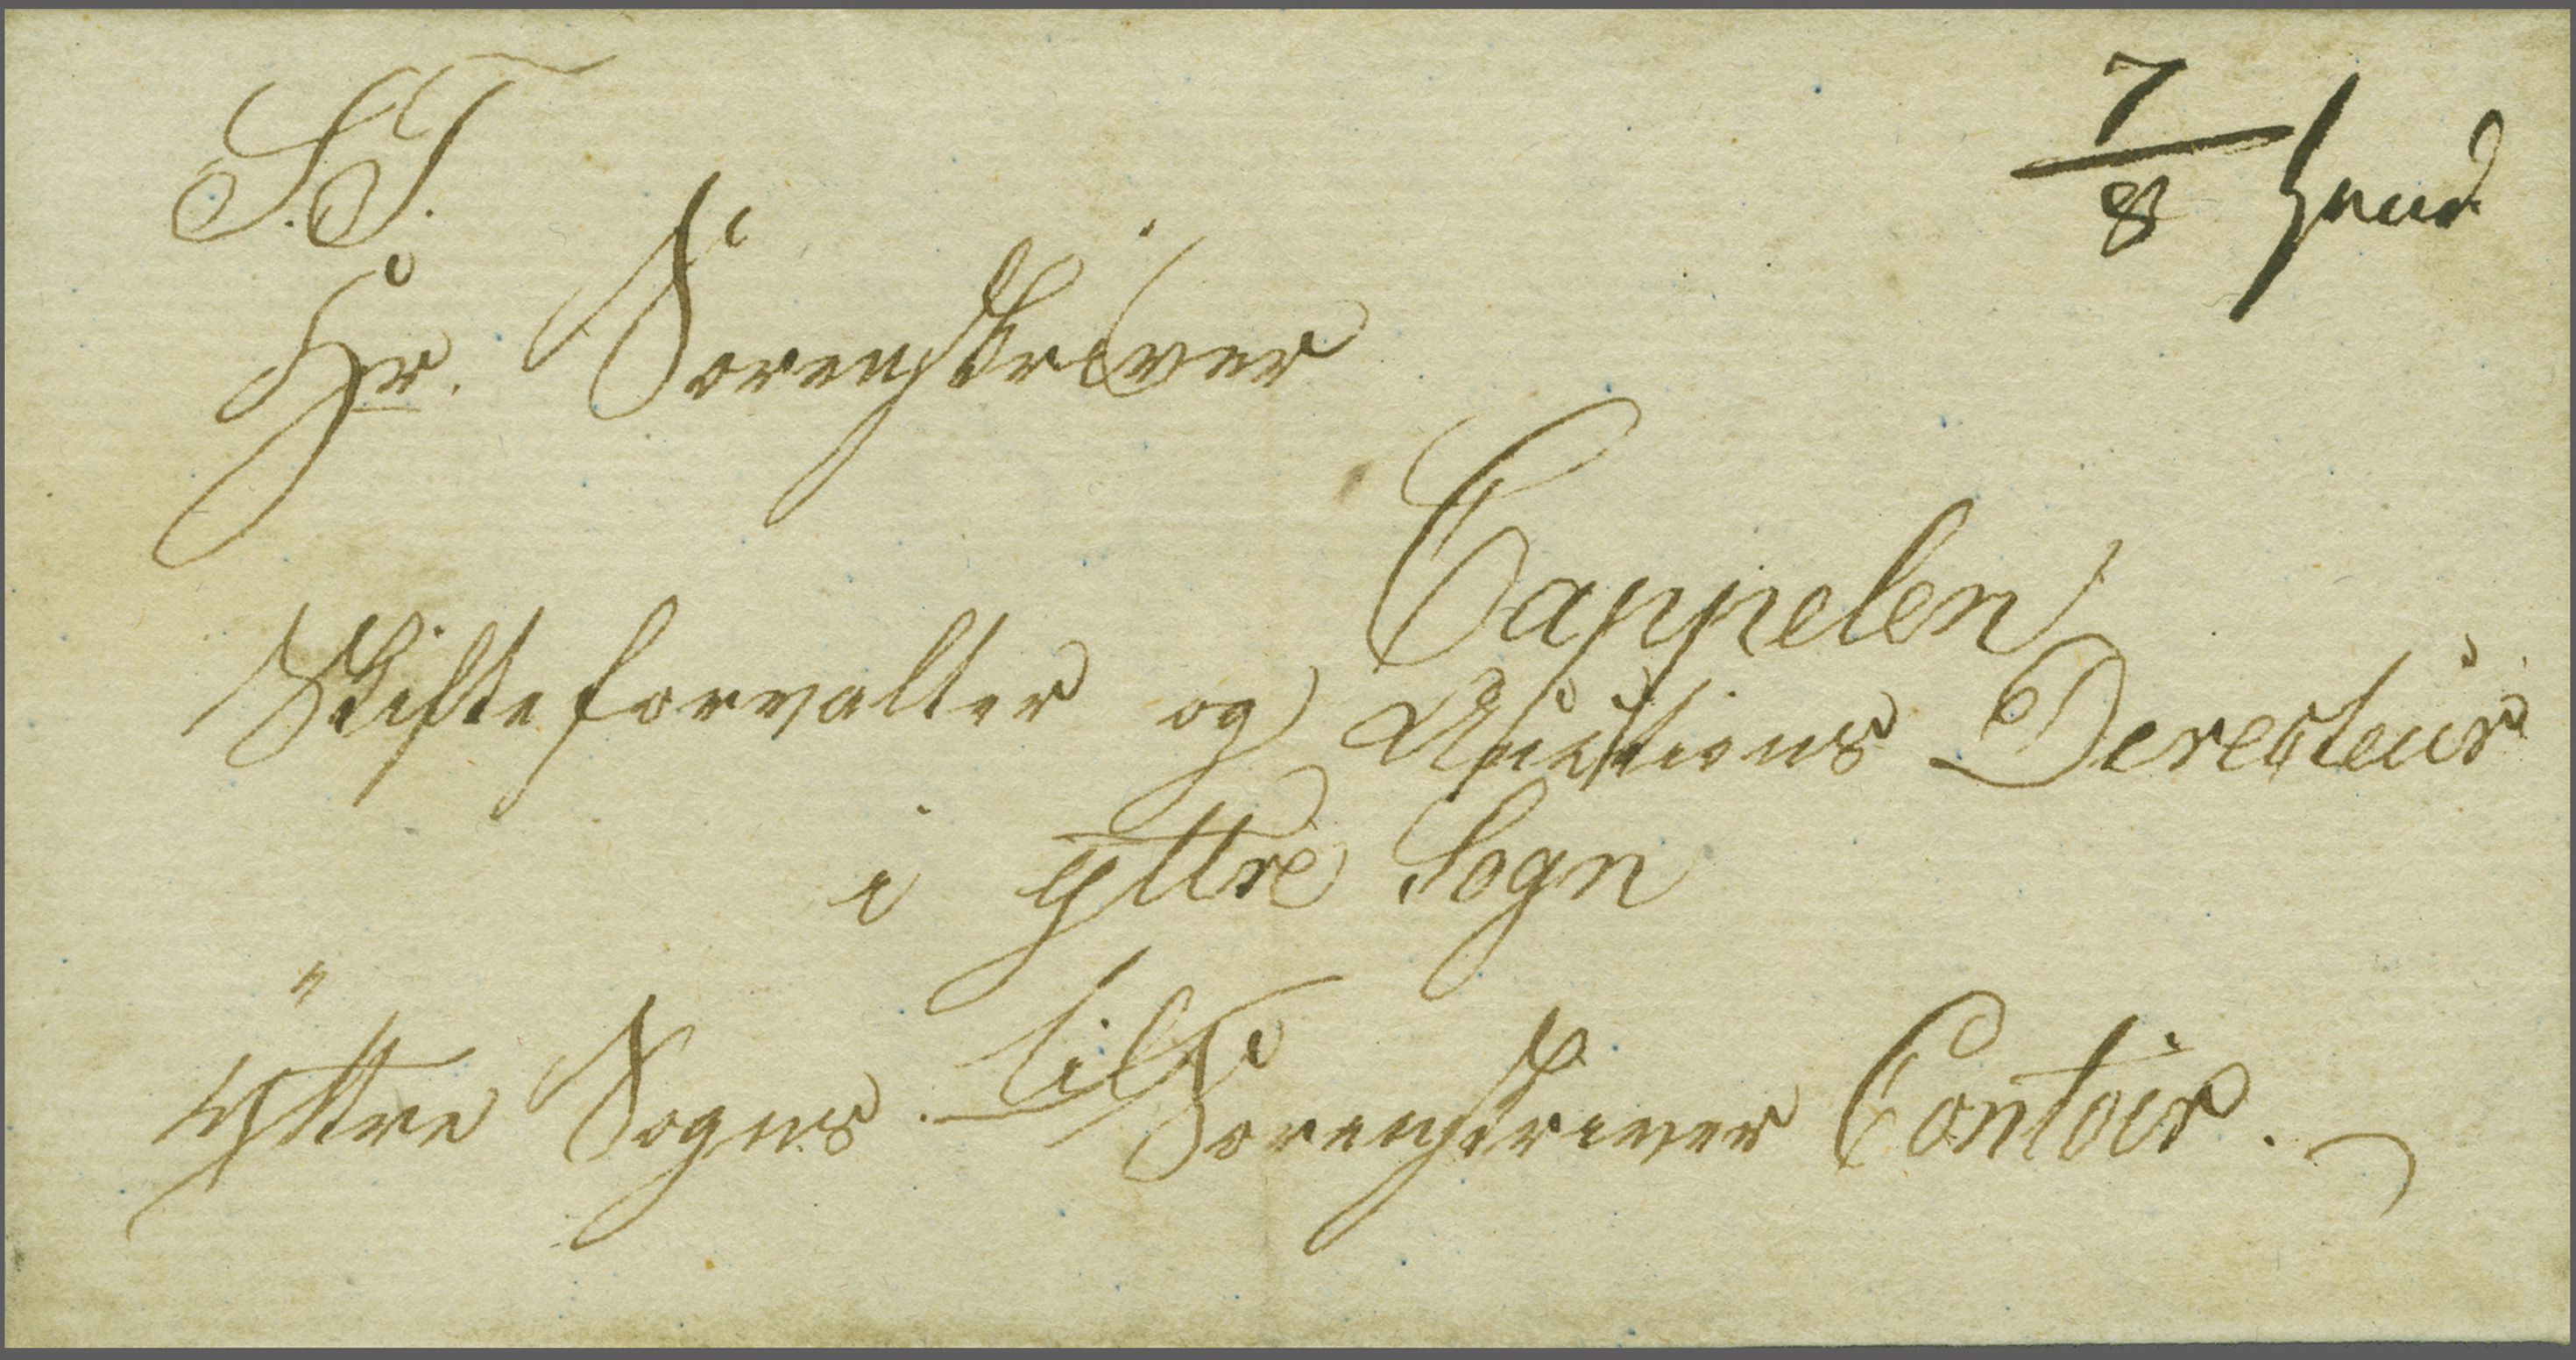 7/8
S. T.
Hr. Sorenskriver
Cappelen
Skifteforvalter og Auctions Directeur
i Yttre Sogn
til
Yttre Sogns Sorenskriver Contoir.